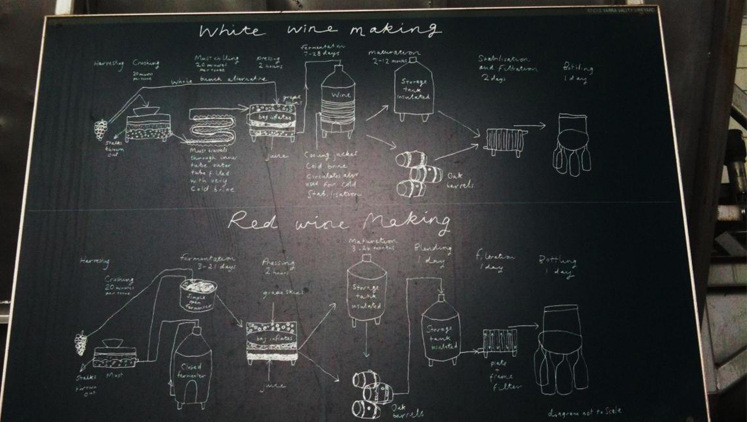 White wine making
Harvesting
Crushing
20 minutes
per tonne
Must chilling
20 minutes
per tonne
Pressing
2 hours
Fermentation
7-28 days
Maturation
2-12 months
Stabilisation
and Filtration
2 days
Bottling
1 day
whole bunch alternative
Stalks
thrown
out
Must travels
through inner
tube, outer
tube filled
with very
cold brine
bag inflates
juice
Wine
Cooling jacket
Cold brine
Circulates also
used for cold
Stabilisation
Storage
tank
insulated
Oak
barrels
Red wine Making
Harvesting
Crushing
20 minutes
per tonne
Fermentation
3-21 days
Pressing
2 hours
Maturation
Blending
1 day
Filtration
1 day
Bottling
1 day
Stalks
thrown
out
Must
Simple
open
fermenter
Closed
fermenter
grape skins
bag inflates
juice
Storage
tank
insulated
Oak
barrels
Storage
tank
insulated
Plate
+
frame
filter
diagram not to Scale